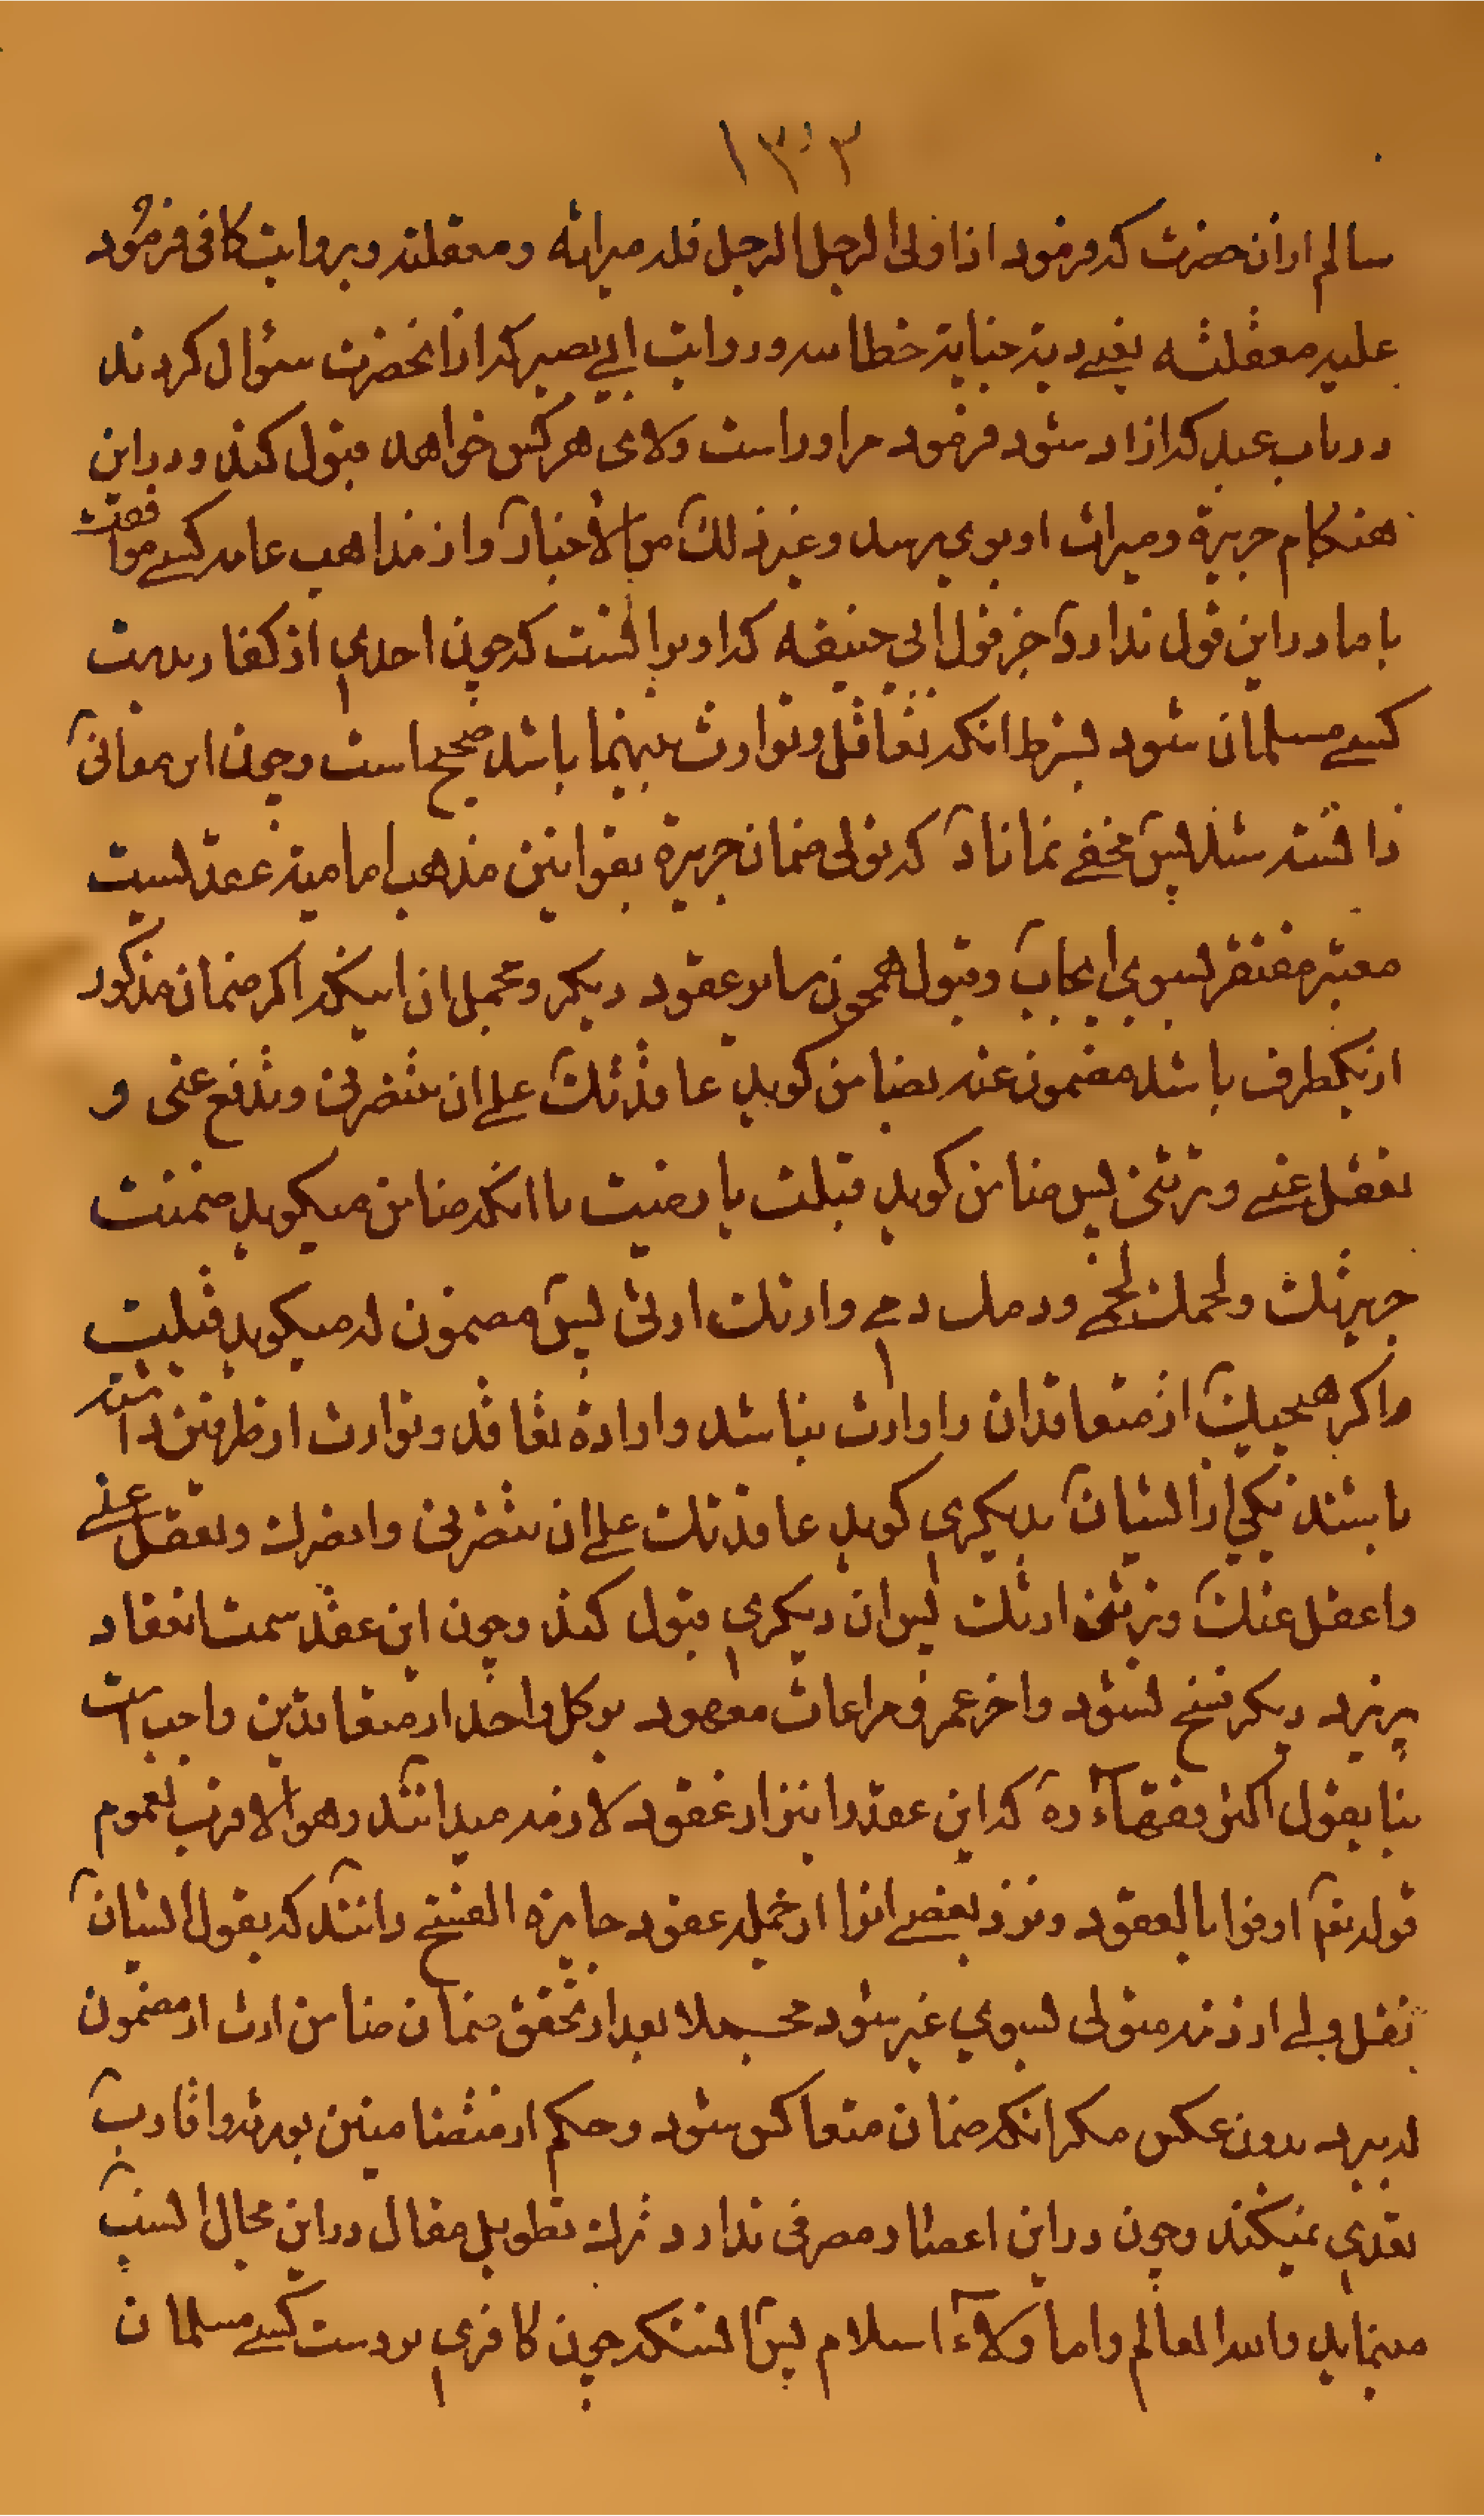 ١٣٠٣
سالم ازان حضرت که فرمود اذا ولی الرجل الرجل فله میراثه و معقلته و بروایت کافی فرمود
علیه معقلته یعنی دیة جنایة خطاست و در روایت ابی بصیر که از انحضرت سئوال کردند
در باب عبد که ازاد شود فرمود مر او راست ولای هر کس خواهد قبول کند و در این
هنکام جریرة و میراث او بوی رسد و غیر ذلک من الاخبار و از مذاهب عامه کسی موافقت
با ما در این قول ندارد جز قول ابی حنیفه که او بر انست که چون احدی از کفار بدست
کسی مسلمان شود بشرط انکه تعاقل و توارث بینهما باشد صحیح است و چون این معانی
دانسته شد پس مخفی نماناد که تولی ضمان جریرة بقوانین مذهب امامیة عقدیست
معتبر مفتقر بسوی ایجاب و قبول همچون سایر عقود دیکر و مجمل ان اینکه اکر ضمان مذکور
از یکطرف باشد مضمون عنه بضامن کوید عاقدتک علی ان تنصرنی و تدفع عنی و
تعقل عنی و ترثنی پس ضامن کوید قبلت یا رضیت یا انکه ضامن میکوید ضمنت
جریرتک و لحمک لحمی و دمک دمی و ارثک ارثی پس مضمون له میکوید قبلت
و اکر هیچیک از متعاقدان را وارث نباشد و ارادة تعاقد و توارث از طرفین داشته
باشند یکی از ایشان بدیکری کوید عاقدتک علی ان تنصرنی و انصرک و تعقل عنی
و اعقل عنک و ترثنی و ارثک پس ان دیکری قبول کند و چون این عقد سمت انعقاد
پذیرد دیکر فسخ نشود و اخر عمر و مراعات معهود بر کل واحد از متعاقدین واجب است
بنا بقول اکثر فقهاء ره که این عقد را نیز از عقود لازمه میدانند و هو الاقرب لعموم
قوله تعم اوفوا بالعقود و نزد بعضی انرا از جمله عقود جایزه الفسخ دانند که بقول ایشان
نقل ولی از ذمه متولی بسوی غیر شود مجملا بعد از تحقق ضمان ضامن ارث از مضمون
له برد بدون عکس مکر انکه ضمان متعاکس شود و حکم از متضامنین بورثه و اقارب
تعدی نمیکند و چون در این اعصار مصرفی ندارد ترک تطویل مقال در این مجال انسب
مینماید و الله العالم و اما ولاء اسلام پس انستکه چون کافری بر دست کسی مسلمان